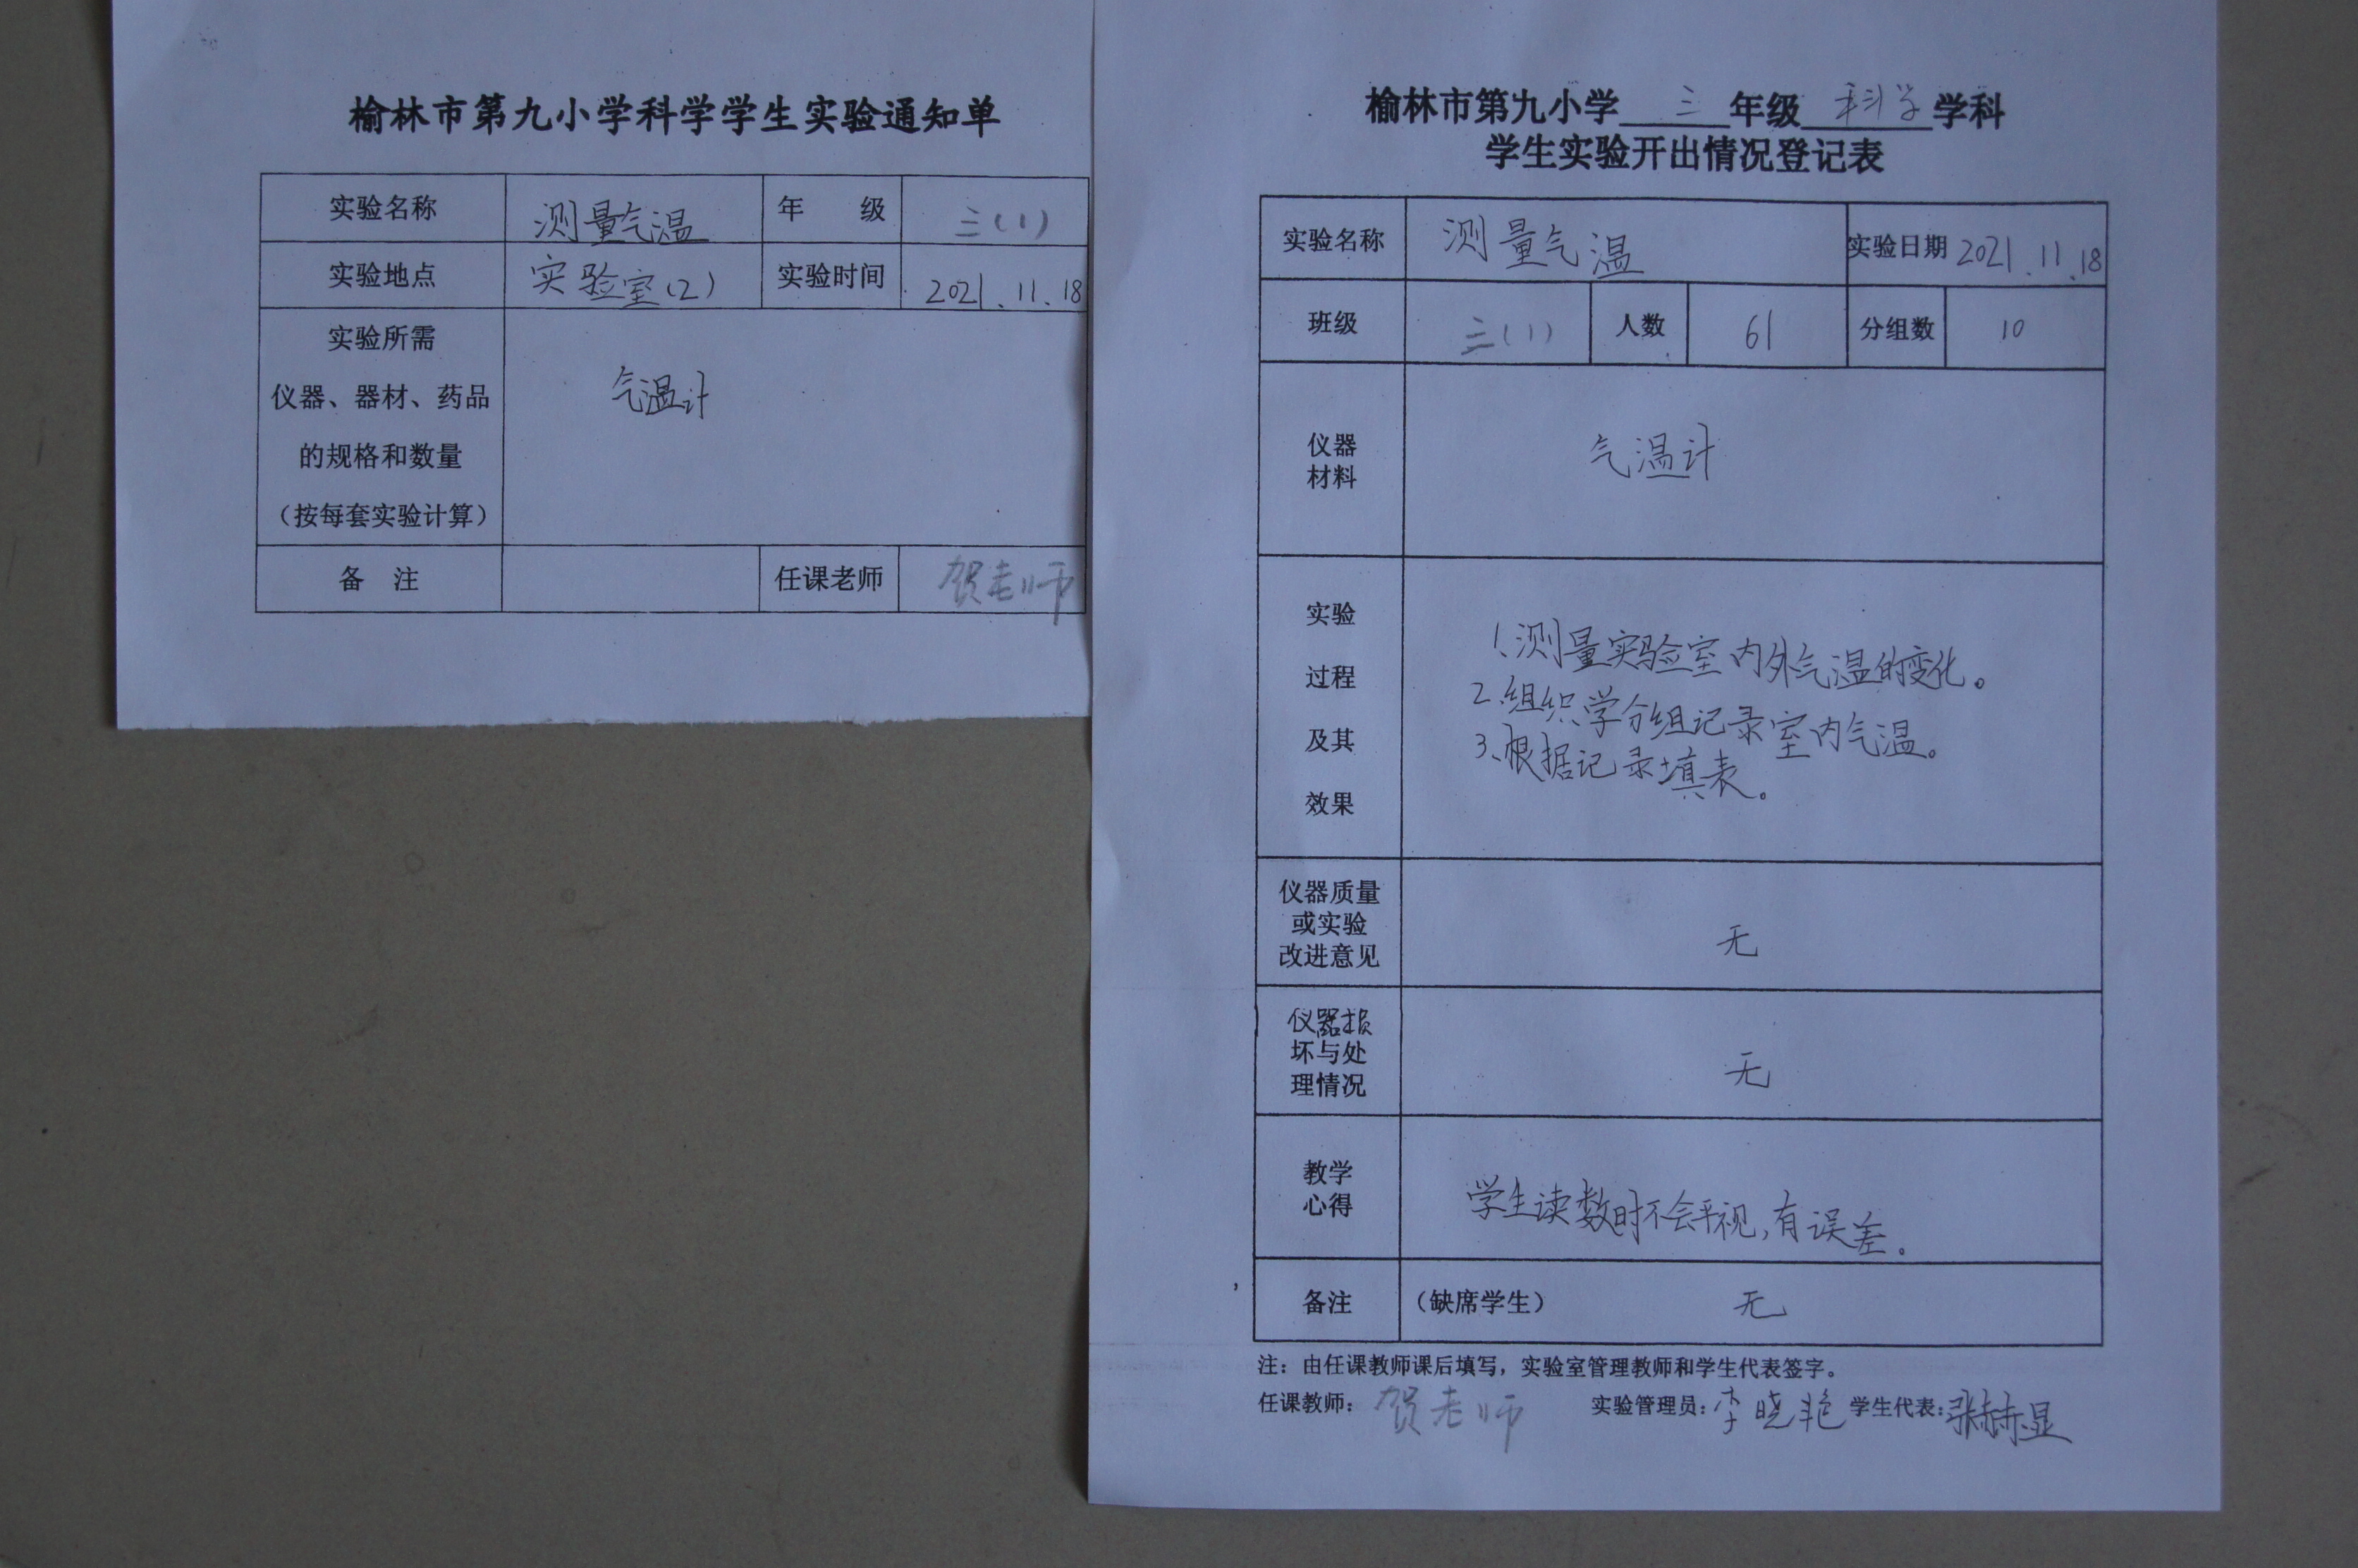 榆林市第九小学科学学生实验通知单
实验名称 测量气温 年 级 三(1)
实验地点 实验室(2) 实验时间 2021.11.18
实验所需
仪器、器材、药品
的规格和数量
(按每套实验计算)
气温计
备 注 任课老师 贺老师
榆林市第九小学 三 年级 科学 学科
学生实验开出情况登记表
实验名称 测量气温 实验日期 2021.11.18
班级 三(1) 人数 61 分组数 10
仪器
材料
气温计
实验
过程
及其
效果
1.测量实验室内外气温的变化。
2.组织学分组记录室内气温。
3、根据记录填表。
仪器质量
或实验
改进意见
无
仪器损
坏与处
理情况
无
教学
心得
学生读数时不会平视,有误差。
备注 (缺席学生) 无
注:由任课教师课后填写,实验室管理教师和学生代表签字。
任课教师: 贺老师 实验管理员: 李晓艳 学生代表: 张赫显